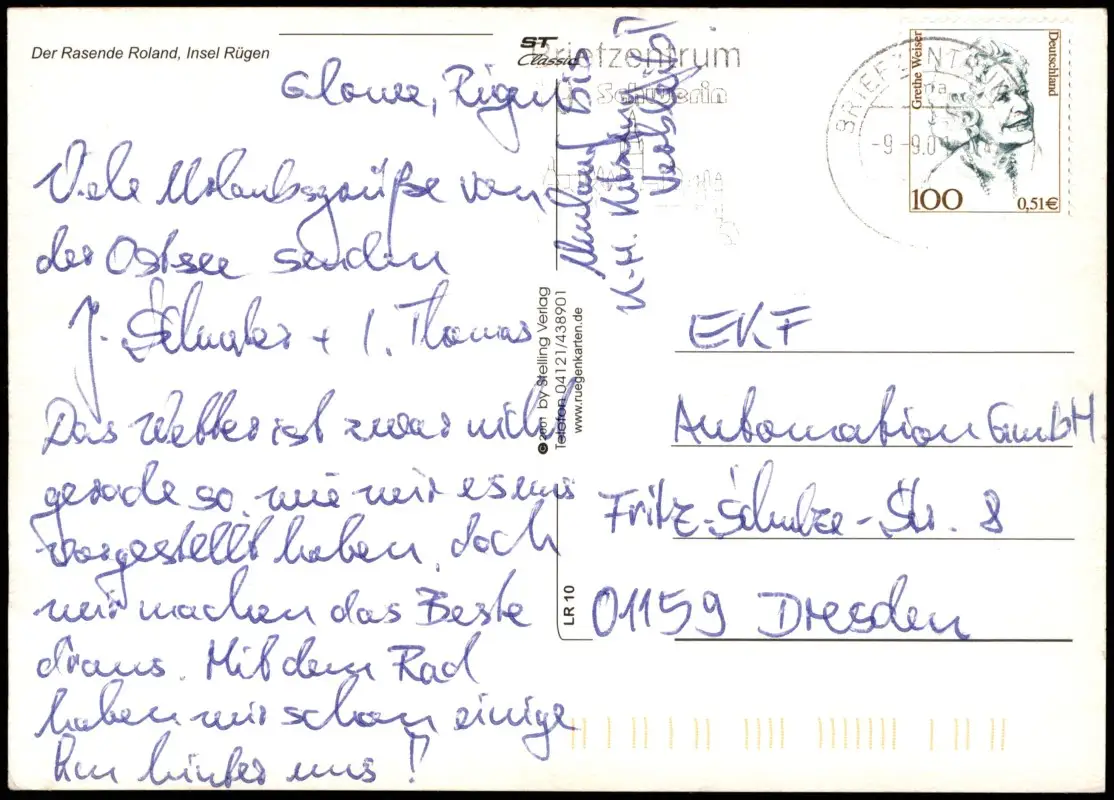 Der Rasende Roland, Insel Rügen
Glowe, Rügen
Viele Urlaubsgrüße von
der Ostsee senden
J. Schuster + I. Thomas
Das Wetter ist zwar nicht
gerade so, wie wir es uns
vorgestellt haben, doch
wir machen das Beste
draus. Mit dem Rad
haben wir schon einige
km hinter uns!
ST
Classic
Briefzentrum
Schwerin
Bis
K-H.
© 2001 by Stelling Verlag
Telefon 04121/438901
www.ruegenkarten.de
LR 10
BRIEFZENTRUM
-9.-9.0
Grethe Weiser
Deutschland
100
0,51€
EKF
Automation GmbH
Fritz-Schulze-Str. 8
01159 Dresden